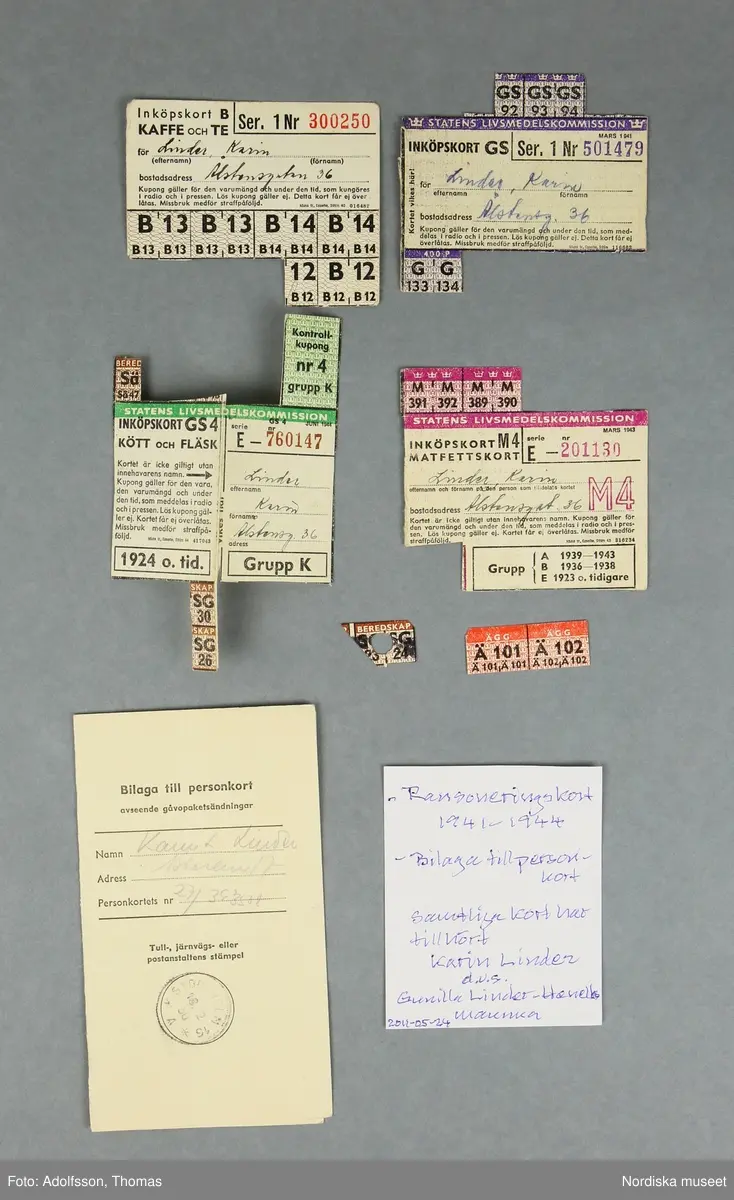 Inköpskort B
KAFFE OCH TE
Ser. 1 Nr 300250
för Linder, Karin
(efternamn) (förnamn)
bostadsadress Ålstensgatan 36
Kupong gäller för den varumängd och under den tid, som kungöres
i radio och i pressen. Lös kupong gäller ej. Detta kort får ej över-
låtas. Missbruk medför straffpåföljd.
B 13 B 13 B 14 B 14
B 13 B 13 B 13 B 13 B 14 B 14 B 14 B 14
12 B 12
B 12 B 12 B 12
GS GS GS
92 93 94
STATENS LIVSMEDELSKOMMISSION
MARS 1941
INKÖPSKORT GS Ser. 1 Nr 501479
Kortet vikes här!
för Linder, Karin
efternamn förnamn
bostadsadress Ålstensg. 36
Kupong gäller för den varumängd och under den tid, som med-
delas i radio och i pressen. Lös kupong gäller ej. Detta kort får ej
överlåtas. Missbruk medför straffpåföljd.
400 P
G G
133 134
BERED
Sä
Sä 47
Kontroll-
kupong
nr 4
grupp K
STATENS LIVSMEDELSKOMMISSION
INKÖPSKORT GS 4
KÖTT OCH FLÄSK
Kortet är icke giltigt utan
innehavarens namn.
Kupong gäller för den vara,
den varumängd och under
den tid, som meddelas i radio
och i pressen. Lös kupong gäl-
ler ej. Kortet får ej överlåtas.
Missbruk medför straffpå-
följd.
1924 o. tid.
vikes här
GS 4 JUNI 1944
serie nr
E – 760147
Linder
efternamn
Karin
förnamn
Ålstensg. 36
adress
Grupp K
SKAP
SG
30
SKAP
SG
26
M M M M
391 392 389 390
STATENS LIVSMEDELSKOMMISSION
MARS 1943
INKÖPSKORT M4
MATFETTSKORT
serie nr
E – 201130
Linder, Karin
efternamn och förnamn på den person som tilldelats kortet
bostadsadress Ålstensgat. 36
M4
Kortet är icke giltigt utan innehavarens namn. Kupong gäller för
den varumängd och under den tid, som meddelas i radio och i pres-
sen. Lös kupong gäller ej. Kortet får ej överlåtas. Missbruk medför
straffpåföljd.
Grupp
A 1939—1943
B 1936—1938
E 1923 o. tidigare
BEREDSKAP
SG
24
ÄGG ÄGG
Ä 101 Ä 102
Ä 101 Ä 101 Ä 102 Ä 102
Bilaga till personkort
avseende gåvopaketsändningar
Namn Linder
Adress
Personkortets nr
Tull-, järnvägs- eller
postanstaltens stämpel
- Ransoneringskort
1941–1944
- Bilaga till person-
kort
Samtliga kort har
tillhört
Karin Linder
d.v.s.
Gunilla Linder-
mamma
2011-05-24
Foto: Adolfsson, Thomas
Nordiska museet